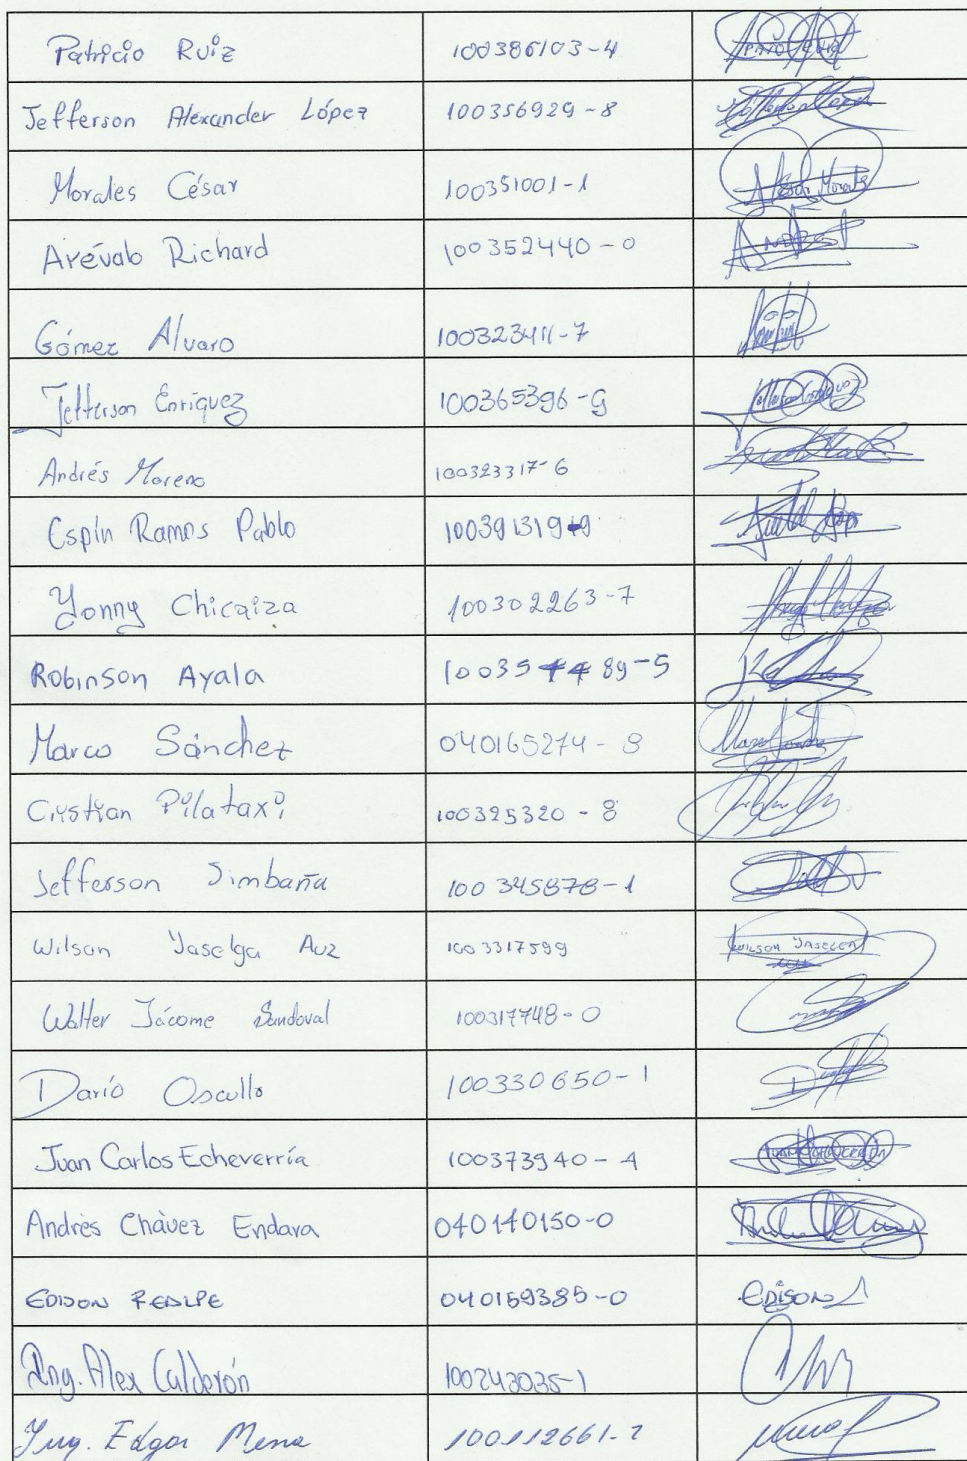 Patricio Ruiz 100386103-4
Jefferson Alexander López 100356929-8
Morales César 100351001-1
Arévalo Richard 100352440-0
Gómez Alvaro 100323411-7
Jefferson Enríquez 100365396-9
Andrés Moreno 100323317-6
Espín Ramos Pablo
Yonny Chicaiza 100302263-7
Robinson Ayala
Marco Sánchez 040165274-8
Cristian Pilataxi 100325320-8
Jefferson Simbaña 100345878-1
Wilson Yaselga Auz 1003317599 WILSON YASELGA
Walter Jácome Sandoval 100317748-0
Darío Oscullo 100330650-1
Juan Carlos Echeverría 100373940-4
Andrés Chàvez Endara 040140150-0
EDISON REALPE 040159385-0 EDISON
Ing. Alex Calderón 100243035-1
Ing. Edgar Mena 100112661-2